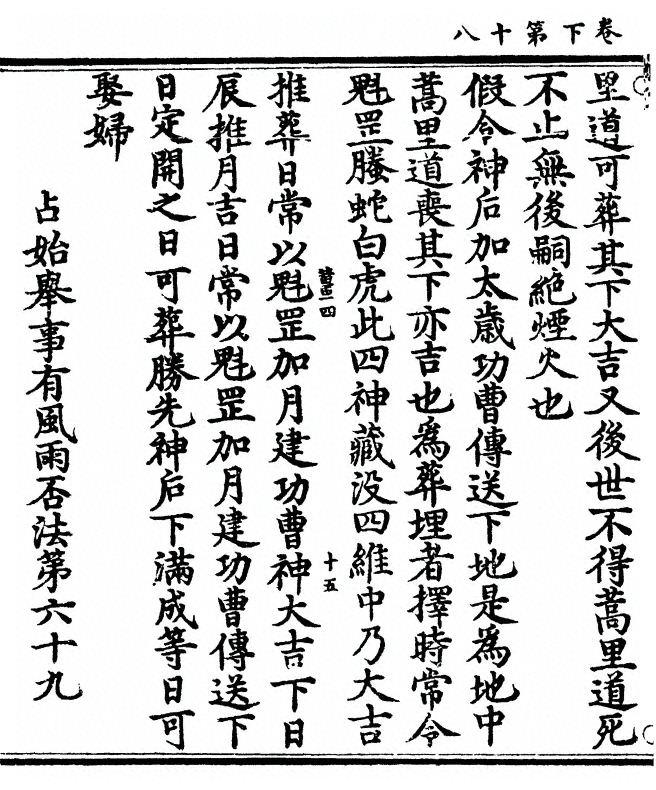 卷下第十八
里道可葬其下大吉又後世不得蒿里道死
不止無後嗣絕煙火也
假令神后加太歲功曹傳送下地是為地中
蒿里道喪其下亦吉也為葬埋者擇時常令
魁罡螣蛇白虎此四神藏没四維中乃大吉
推葬日常以魁罡加月建功曹神大吉下日
十五
辰推月吉日常以魁罡加月建功曹傳送下
日定開之日可葬勝先神后下滿成等日可
娶婦
占始舉事有風雨否法第六十九